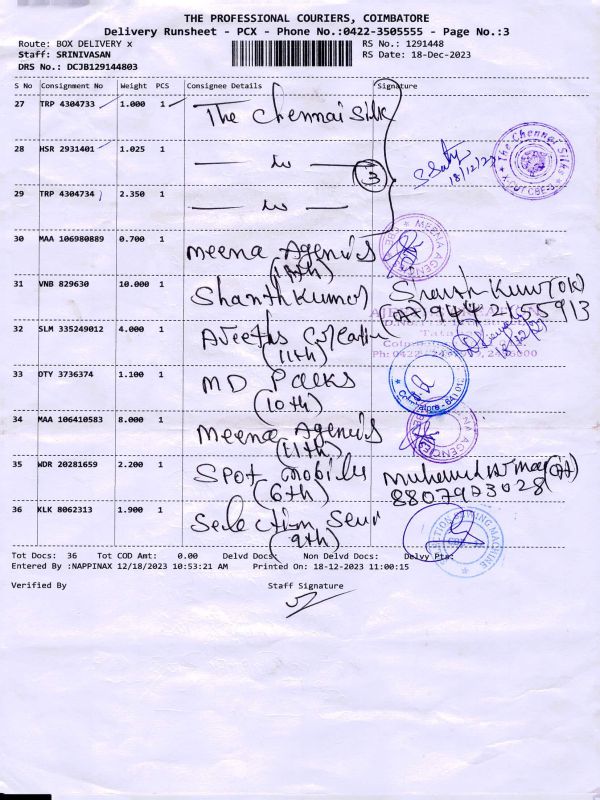 THE PROFESSIONAL COURIERS, COIMBATORE
Delivery Runsheet - PCX - Phone No.:0422-3505555 - Page No.:3
Route: BOX DELIVERY x
RS No.: 1291448
Staff: SRINIVASAN
RS Date: 18-Dec-2023
DRS No.: DCJB129144803
S No Consignment No Weight PCS Consignee Details Signature
27 TRP 4304733 1.000 1 The Chennai Silk
28 HSR 2931401 1.025 1 18/12/23 The Chennai Silks
3
29 TRP 4304734 2.350 1
30 MAA 106980889 0.700 1 Meena Agencies MEENA AGENCIES
31 VNB 829630 10.000 1 Shanth Kumar
9442155913
32 SLM 335249012 4.000 1
(11th)
33 DTY 3736374 1.100 1 MD Packs
(10th) Coimbatore - 641 01
34 MAA 106410583 8.000 1 Meena Agencies
(11th)
35 WDR 20281659 2.200 1 Spot mobiles
(6th) 8807923028
36 KLK 8062313 1.900 1 Selection
(9th)
Tot Docs: 36 Tot COD Amt: 0.00 Delvd Docs: Non Delvd Docs: Delvy Pts:
Entered By :NAPPINAX 12/18/2023 10:53:21 AM Printed On: 18-12-2023 11:00:15
Verified By Staff Signature